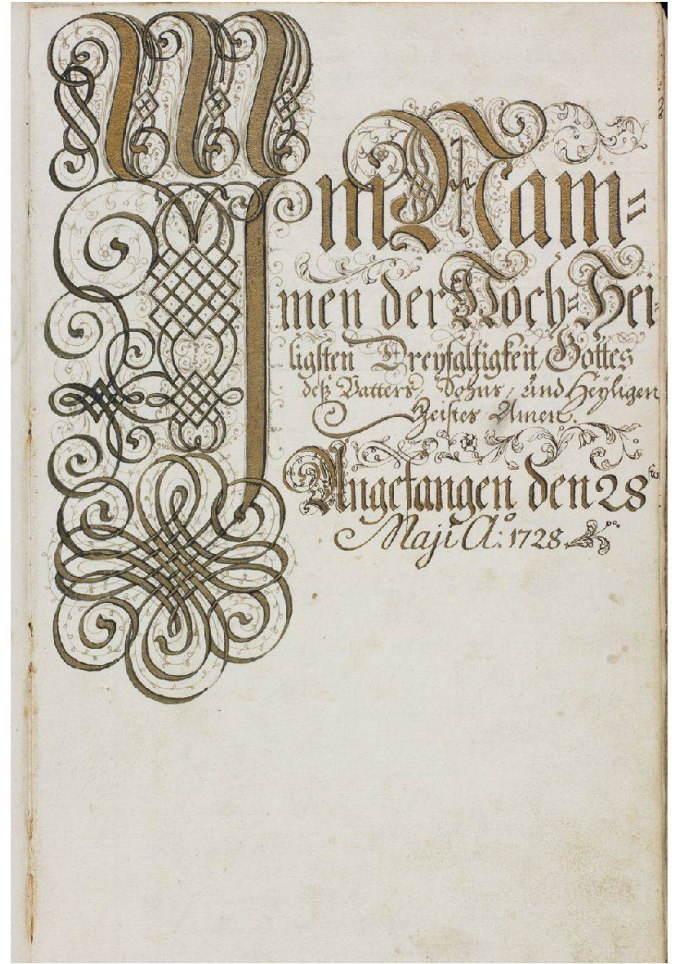 Im Nam=
men der Hoch=Hei
ligsten Dreyfaltigkeit Gottes
deß Vatters, Sohns, und Heyligen
Geistes Amen.
Angefangen den 28
Maji Aº: 1728